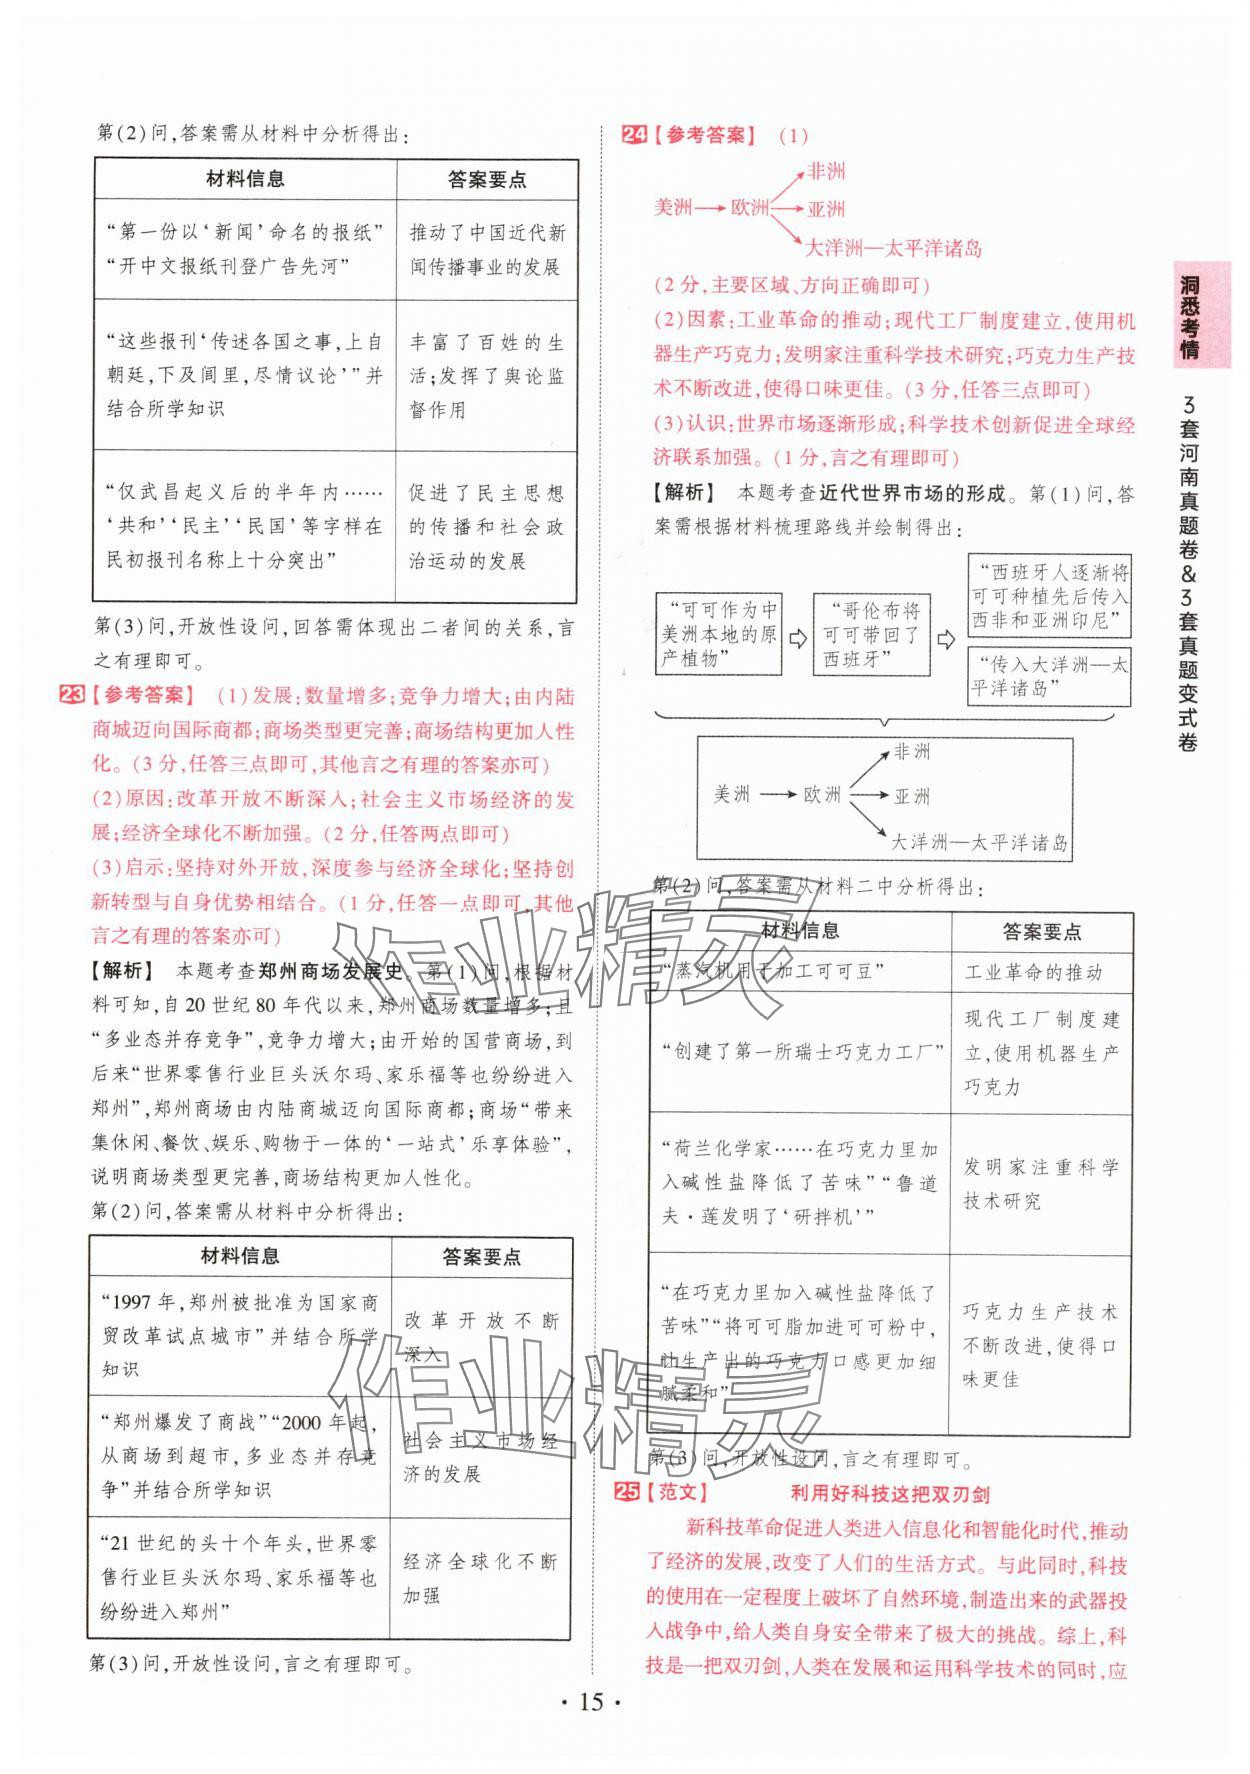 第(2)问,答案需从材料中分析得出:
材料信息 答案要点
“第一份以‘新闻’命名的报纸” 推动了中国近代新
“开中文报纸刊登广告先河” 闻传播事业的发展
“这些报刊‘传述各国之事,上自 丰富了百姓的生
朝廷,下及闾里,尽情议论’”并 活;发挥了舆论监
结合所学知识 督作用
“仅武昌起义后的半年内…… 促进了民主思想
‘共和’‘民主’‘民国’等字样在 的传播和社会政
民初报刊名称上十分突出” 治运动的发展
第(3)问,开放性设问,回答需体现出二者间的关系,言
之有理即可。
23【参考答案】 (1)发展:数量增多;竞争力增大;由内陆
商城迈向国际商都;商场类型更完善;商场结构更加人性
化。(3分,任答三点即可,其他言之有理的答案亦可)
(2)原因:改革开放不断深入;社会主义市场经济的发
展;经济全球化不断加强。(2分,任答两点即可)
(3)启示:坚持对外开放,深度参与经济全球化;坚持创
新转型与自身优势相结合。(1分,任答一点即可,其他
言之有理的答案亦可)
【解析】 本题考查郑州商场发展史。第(1)问,根据材
料可知,自20世纪80年代以来,郑州商场数量增多;且
“多业态并存竞争”,竞争力增大;由开始的国营商场,到
后来“世界零售行业巨头沃尔玛、家乐福等也纷纷进入
郑州”,郑州商场由内陆商城迈向国际商都;商场“带来
集休闲、餐饮、娱乐、购物于一体的‘一站式’乐享体验”,
说明商场类型更完善,商场结构更加人性化。
第(2)问,答案需从材料中分析得出:
材料信息 答案要点
“1997年,郑州被批准为国家商 改革开放不断
贸改革试点城市”并结合所学 深入
知识
“郑州爆发了商战”“2000年起, 社会主义市场经
从商场到超市,多业态并存竞 济的发展
争”并结合所学知识
“21世纪的头十个年头,世界零 经济全球化不断
售行业巨头沃尔玛、家乐福等也 加强
纷纷进入郑州”
第(3)问,开放性设问,言之有理即可。
24【参考答案】 (1)
非洲
美洲 欧洲 亚洲
大洋洲—太平洋诸岛
(2分,主要区域、方向正确即可)
(2)因素:工业革命的推动;现代工厂制度建立,使用机
器生产巧克力;发明家注重科学技术研究;巧克力生产技
术不断改进,使得口味更佳。(3分,任答三点即可)
(3)认识:世界市场逐渐形成;科学技术创新促进全球经
济联系加强。(1分,言之有理即可)
【解析】 本题考查近代世界市场的形成。第(1)问,答
案需根据材料梳理路线并绘制得出:
“可可作为中
美洲本地的原
产植物”
“哥伦布将
可可带回了
西班牙”
“西班牙人逐渐将
可可种植先后传入
西非和亚洲印尼”
“传入大洋洲—太
平洋诸岛”
非洲
美洲 欧洲 亚洲
大洋洲—太平洋诸岛
第(2)问,答案需从材料二中分析得出:
材料信息 答案要点
“蒸汽机用于加工可可豆” 工业革命的推动
“创建了第一所瑞士巧克力工厂” 现代工厂制度建
立,使用机器生产
巧克力
“荷兰化学家……在巧克力里加 发明家注重科学
入碱性盐降低了苦味”“鲁道 技术研究
夫·莲发明了‘研拌机’”
“在巧克力里加入碱性盐降低了 巧克力生产技术
苦味”“将可可脂加进可可粉中, 不断改进,使得口
让生产出的巧克力口感更加细 味更佳
腻柔和”
第(3)问,开放性设问,言之有理即可。
25【范文】 利用好科技这把双刃剑
新科技革命促进人类进入信息化和智能化时代,推动
了经济的发展,改变了人们的生活方式。与此同时,科技
的使用在一定程度上破坏了自然环境,制造出来的武器投
入战争中,给人类自身安全带来了极大的挑战。综上,科
技是一把双刃剑,人类在发展和运用科学技术的同时,应
洞悉考情
3套河南真题卷&3套真题变式卷
作业精灵
作业精灵
·15·